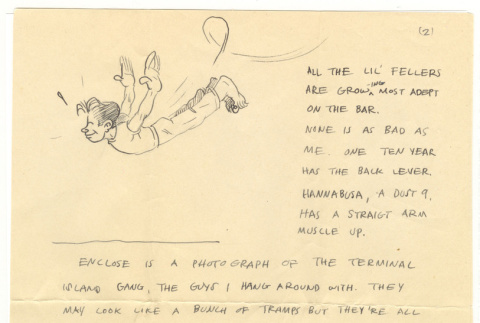 [2]
ALL THE LIL' FELLERS
ARE GROWING MOST ADEPT
ON THE BAR.
NONE IS AS BAD AS
ME. ONE TEN YEAR
HAS THE BACK LEVER.
HANNABUSA, A DUST 9,
HAS A STRAIGT ARM
MUSCLE UP.
ENCLOSE IS A PHOTOGRAPH OF THE TERMINAL
ISLAND GANG, THE GUYS I HANG AROUND WITH. THEY
MAY LOOK LIKE A BUNCH OF TRAMPS BUT THEY'RE ALL